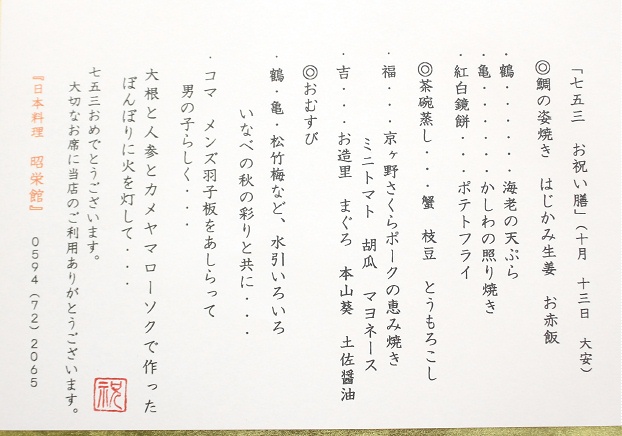 「七五三 お祝い膳」(十月 十三日 大安)
◎鯛の姿焼き はじかみ生姜 お赤飯
・鶴・・・・・海老の天ぷら
・亀・・・・・かしわの照り焼き
・紅白鏡餅・・・ポテトフライ
◎茶碗蒸し・・・蟹 枝豆 とうもろこし
・福・・・京ヶ野さくらポークの恵み焼き
ミニトマト 胡瓜 マヨネース
・吉・・・お造里 まぐろ 本山葵 土佐醤油
◎おむすび
・鶴・亀・松竹梅など、水引いろいろ
いなべの秋の彩りと共に・・・
・コマ メンズ羽子板をあしらって
男の子らしく・・・
大根と人参とカメヤマローソクで作った
ぼんぼりに火を灯して・・・
七五三おめでとうございます。
大切なお席に当店のご利用ありがとうございます。
祝
『日本料理 昭栄館』 0594(72)2065